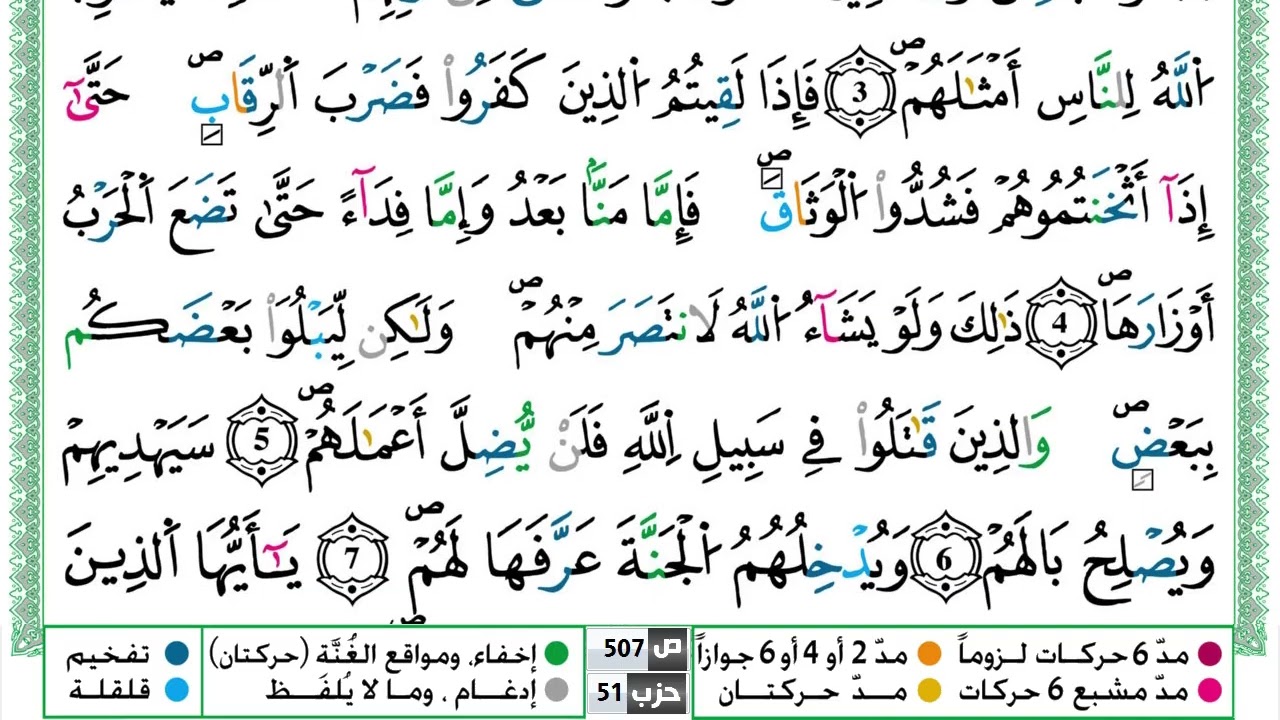 اَ۬للَّهُ لِلنَّاسِ أَمْثَٰلَهُمْۖ 3 فَإِذَا لَقِيتُمُ اُ۬لذِينَ كَفَرُواْ فَضَرْبَ اَ۬لرِّقَابِۖ حَتَّىٰٓ
إِذَآ أَثْخَنتُمُوهُمْ فَشُدُّواْ اُ۬لْوَثَاقَۖ فَإِمَّا مَنَّاۢ بَعْدُ وَإِمَّا فِدَآءً حَتَّىٰ تَضَعَ اَ۬لْحَرْبُ
أَوْزَارَهَاۖ 4 ذَٰلِكَ وَلَوْ يَشَآءُ اُ۬للَّهُ لَانتَصَرَ مِنْهُمْۖ وَلَٰكِن لِّيَبْلُوَاْ بَعْضَكُم
بِبَعْضٖۖ وَالذِينَ قَٰتَلُواْ فِے سَبِيلِ اِ۬للَّهِ فَلَنْ يُّضِلَّ أَعْمَٰلَهُمْۖ 5 سَيَهْدِيهِمْ
وَيُصْلِحُ بَالَهُمْ 6 وَيُدْخِلُهُمُ اُ۬لْجَنَّةَ عَرَّفَهَا لَهُمْۖ 7 يَٰٓأَيُّهَا اَ۬لذِينَ
مدّ 6 حركات لـزوماً مدّ 2 أو 4 أو 6 جوازاً ص 507 إخفاء، ومواقع الغُنَّة (حركتان) تفخيم
مدّ مشبع 6 حركات مــدّ حركتــان حزب 51 إدغـام ، ومـا لا يُلفَـظ قلقلـة